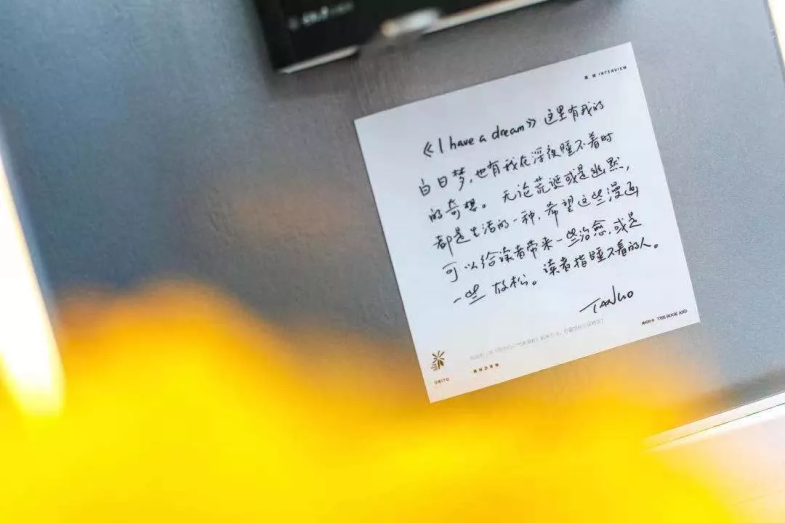 INTERVIEW
《I have a dream》这里有我的
白日梦,也有我在深夜睡不着时
的奇想。无论荒诞或是幽默,
都是生活的一种,希望这些漫画
可以给读者带来一些治愈,或是
一些放松。读者指睡不着的人。
TANGO